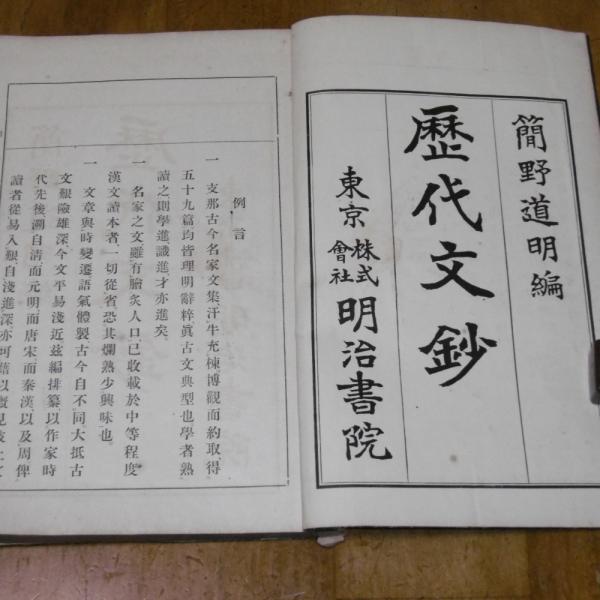 簡野道明編
歷代文鈔
東京
株式
會社
明治書院
例言
一 支那古今名家文集、汗牛充棟、博觀而約取、得
五十九篇、均皆理明辭粹、眞古文典型也、學者熟
讀之、則學進識進才亦進矣。
一 名家之文、雖有膾炙人口、已收載於中等程度
漢文讀本者、一切從省、恐其爛熟少興味也。
一 文章與時變遷、語氣體製、古今自不同、大抵古
文艱險雄深、今文平易淺近、茲編排纂、以作家時
代先後、溯自清而元明、而唐宋、而秦漢、以及周、俾
讀者從易入艱、自淺進深、亦可藉以